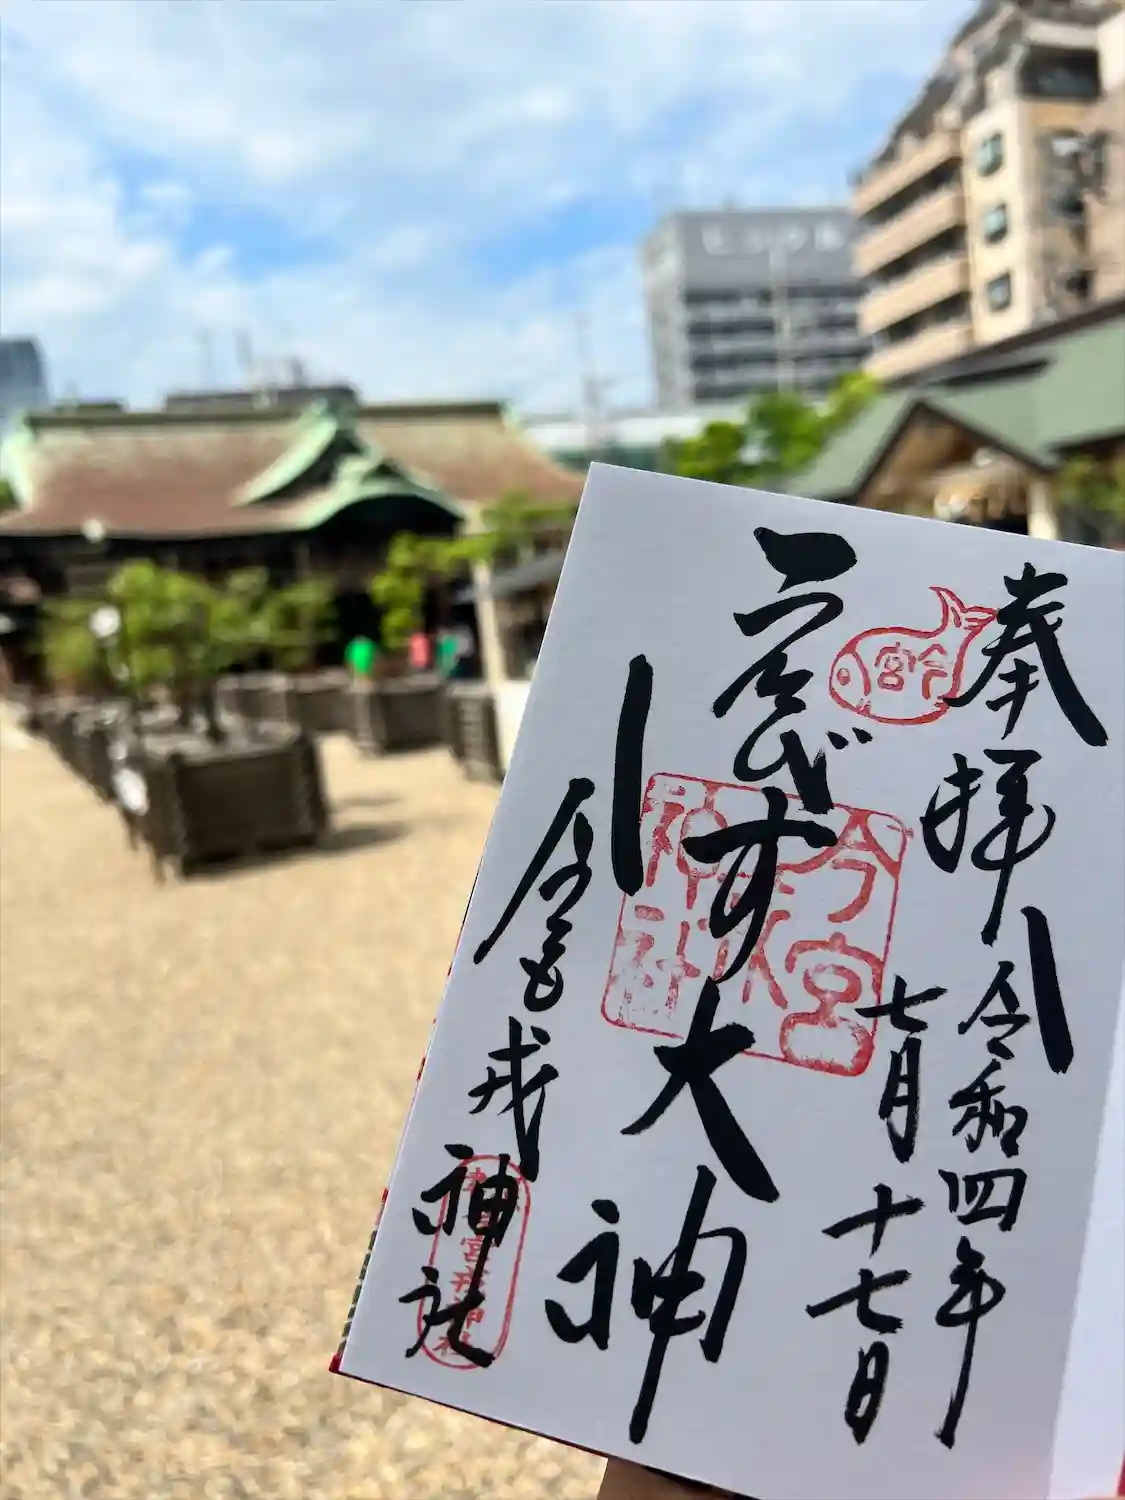 奉拝
令和四年
七月十七日
今宮
ゑびす大神
今宮戎神社
今宮戎神社